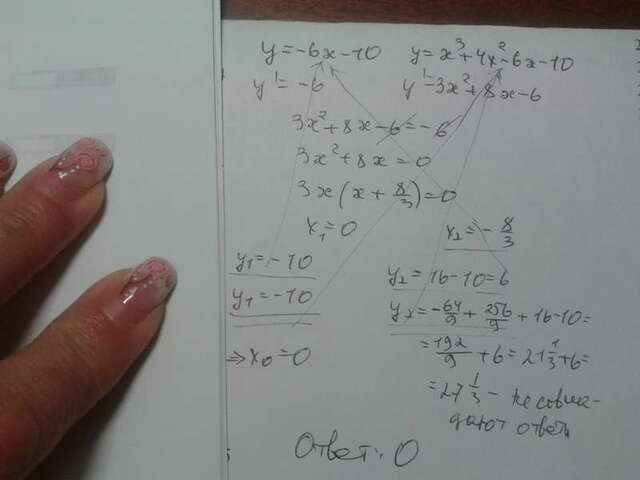 y = -6x - 10
y = x³ + 4x² - 6x - 10
y' = -6
y' = 3x² + 8x - 6
3x² + 8x - 6 = -6
3x² + 8x = 0
3x (x + 8/3) = 0
x₁ = 0
x₂ = - 8/3
y₁ = -10
y₁ = -10
⇒ x₀ = 0
y₂ = 16 - 10 = 6
y₂ = -64/9 + 256/9 + 16 - 10 =
= 192/9 + 6 = 21 1/3 + 6 =
= 27 1/3 - не совпа-
дают ответы
Ответ: 0